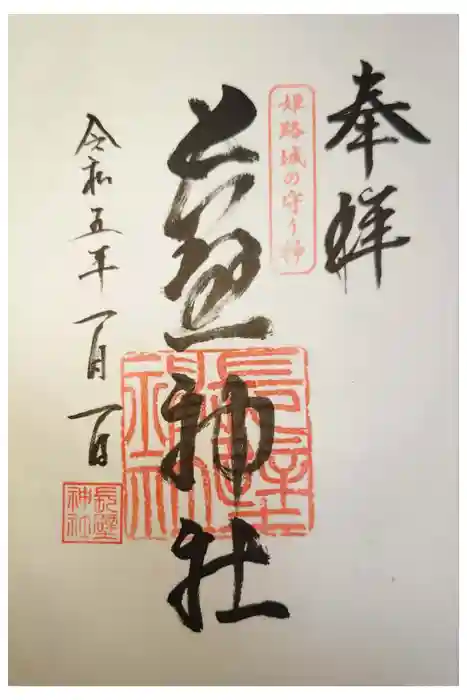 奉拝
姫路城の守り神
長壁神社
長壁
神社
令和五年一月一日
長壁
神社